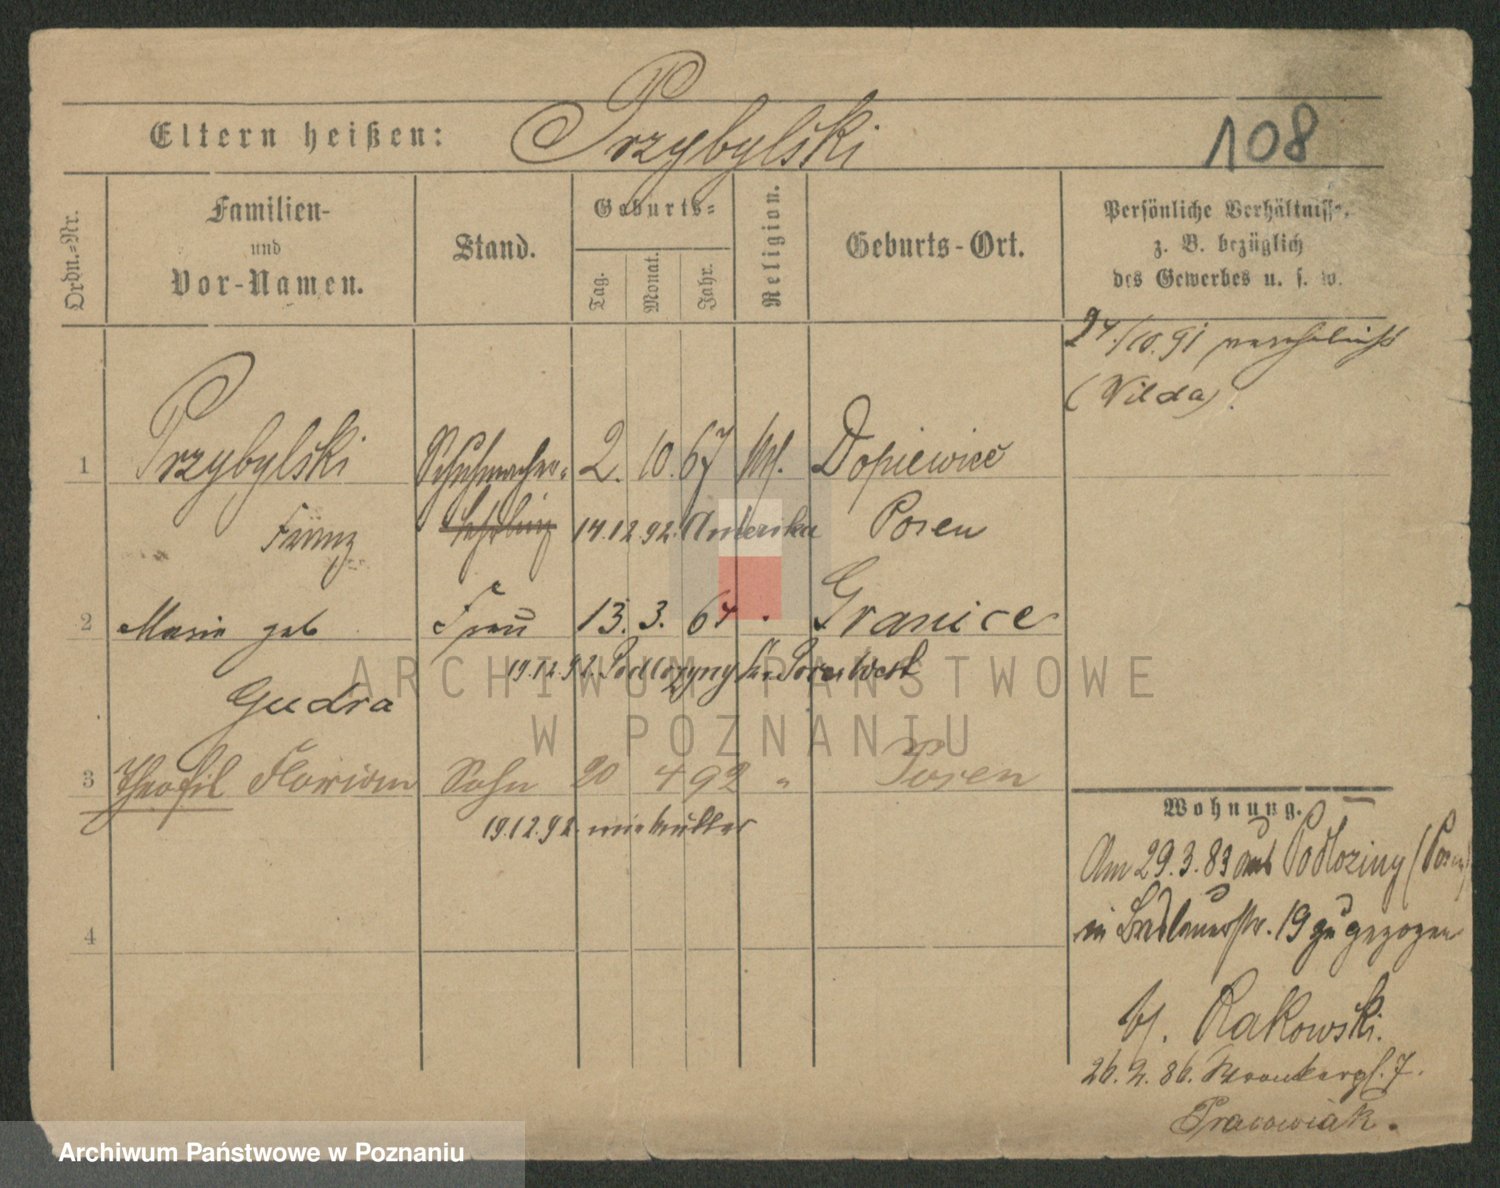 Eltern heißen: Przybylski
108
Ordn.-Nr.
Familien-
und
Vor-Namen.
Stand.
Geburts-
Tag.
Monat.
Jahr.
Religion.
Geburts-Ort.
Persönliche Verhältnisse,
z. B. bezüglich
des Gewerbes u. s. w.
24./10.91 verehelicht
(Wilda).
1 Przybylski Schuhmacher- 2. 10. 67 Dopiewiec
Franz Lehrling 14.12.92. Amerika Posen
2 Marie geb Frau 13. 3. 64 Granice
19.12.92. Podlozyny Kr. Posen West
Gudra
3 Theofil Florian Sohn 20 4 92 " Posen
19.12.92. mit Mutter
4
Wohnung.
Am 29.3.83 aus Podloziny (Posen)
in 19 zugezogen
b/. Rakowski.
26.2.86. Wronkergs. 7.
Pracowiak.
ARCHIWUM PAŃSTWOWE
W POZNANIU
Archiwum Państwowe w Poznaniu